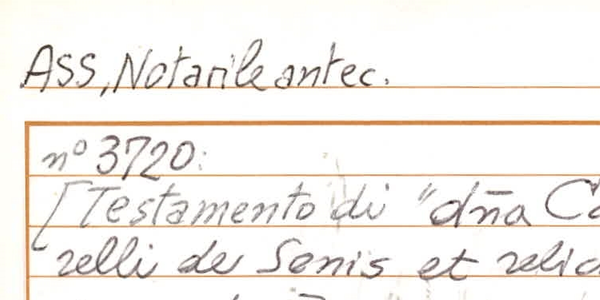 ASS, Notarile antec.
nº 3720:
[Testamento di "dña Ca
relli de Senis et relic